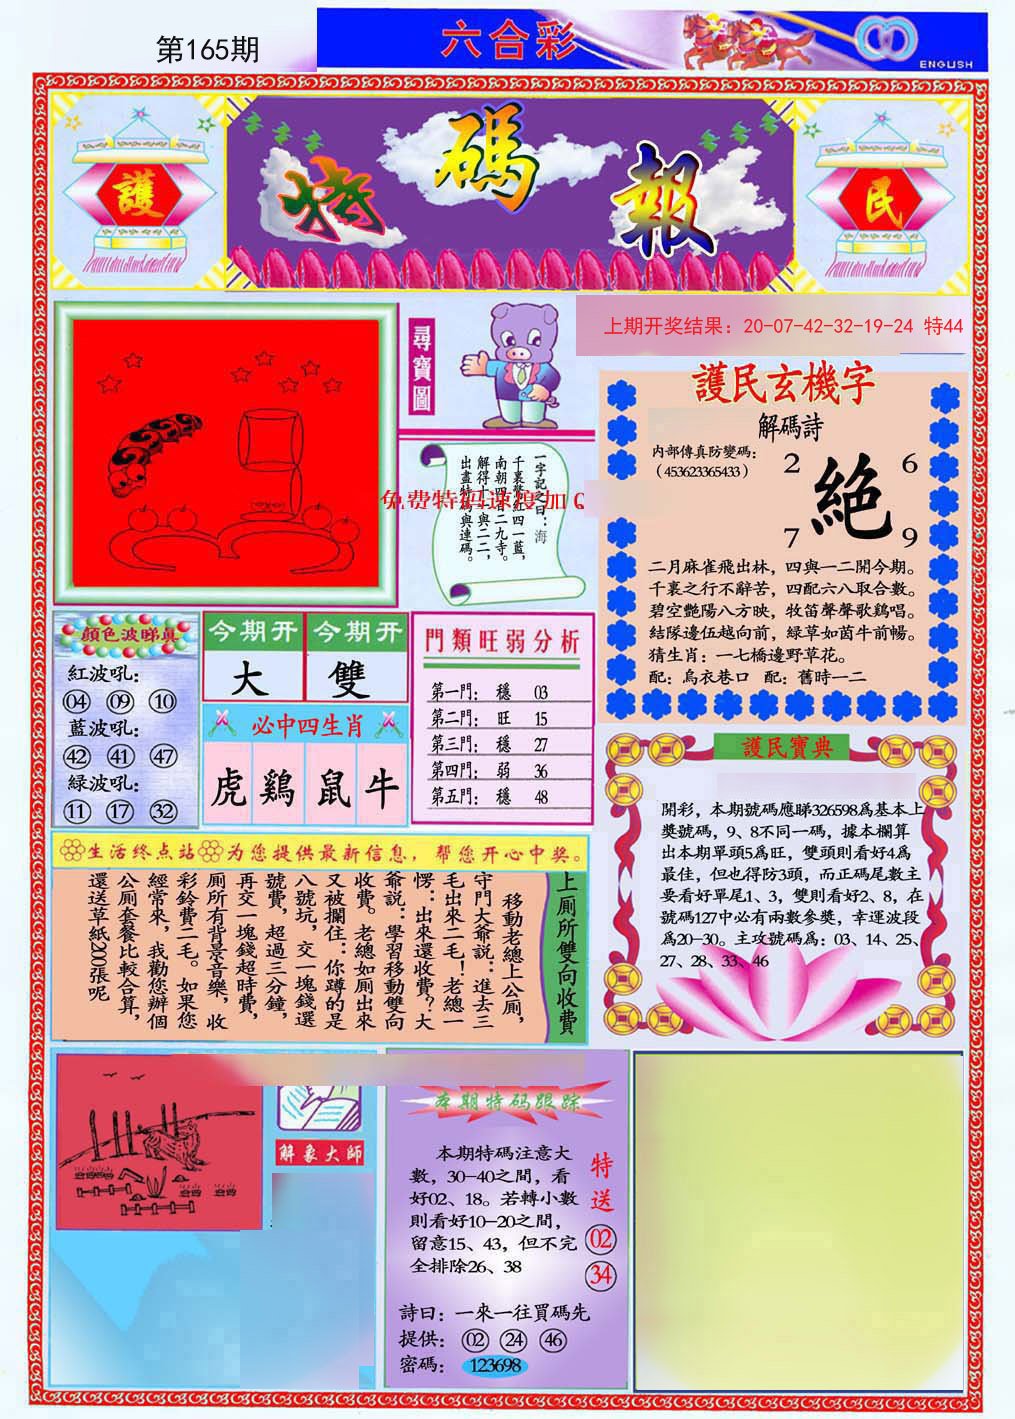 第165期
六合彩
ENGLISH
護
特碼報
民
尋寶圖
上期开奖结果：20-07-42-32-19-24 特44
護民玄機字
解碼詩
内部傳真防變碼：
（453623365433）
2 6
絕
7 9
二月麻雀飛出林，四與一二開今期。
千裏之行不辭苦，四配六八取合數。
碧空艷陽八方映，牧笛聲聲歌鷄唱。
結隊邊伍越向前，緑草如茵牛前暢。
猜生肖：一七橋邊野草花。
配：烏衣巷口 配：舊時一二
一字記之曰：海
千裏鶯紅四一藍，
南朝四百二九寺。
解得十一與二二，
出盡特碼與連碼。
免费特码速度加Q
顔色波睇真
紅波吼：
04 09 10
藍波吼：
42 41 47
綠波吼：
11 17 32
今期開 今期開
大 雙
必中四生肖
虎 鷄 鼠 牛
門類旺弱分析
第一門： 穩 03
第二門： 旺 15
第三門： 穩 27
第四門： 弱 36
第五門： 穩 48
護民寶典
開彩，本期號碼應睇326598爲基本上
獎號碼，9、8不同一碼，據本欄算
出本期單頭5爲旺，雙頭則看好4爲
最佳，但也得防3頭，而正碼尾數主
要看好單尾1、3，雙則看好2、8，在
號碼127中必有兩數參獎，幸運波段
爲20-30。主攻號碼爲：03、14、25、
27、28、33、46
生活终点站 为您提供最新信息，帮您开心中奖。
上厠所雙向收費
移動老總上公厠，
守門大爺説：進去三
毛出來二毛！老總一
愣：出來還收費？大
爺説：學習移動雙向
收費。老總如厠出來
又被攔住：你蹲的是
八號坑，交一塊錢選
號費，超過三分鐘，
再交一塊錢超時費，
厠所有背景音樂，收
彩鈴費二毛。如果您
經常來，我勸您辦個
公厠套餐比較合算，
還送草紙2000張呢
解象大師
本期特码跟踪
本期特碼注意大
數，30-40之間，看
好02、18。若轉小數
則看好10-20之間，
留意15、43，但不完
全排除26、38
特送
02
34
詩曰：一來一往買碼先
提供：02 24 46
密碼：123698